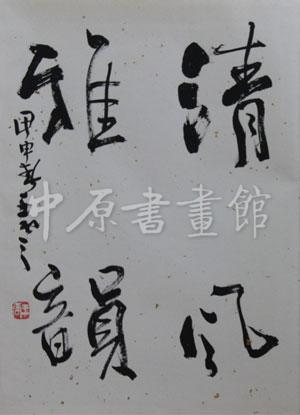 清风
雅韻
甲申春
中原書畫館